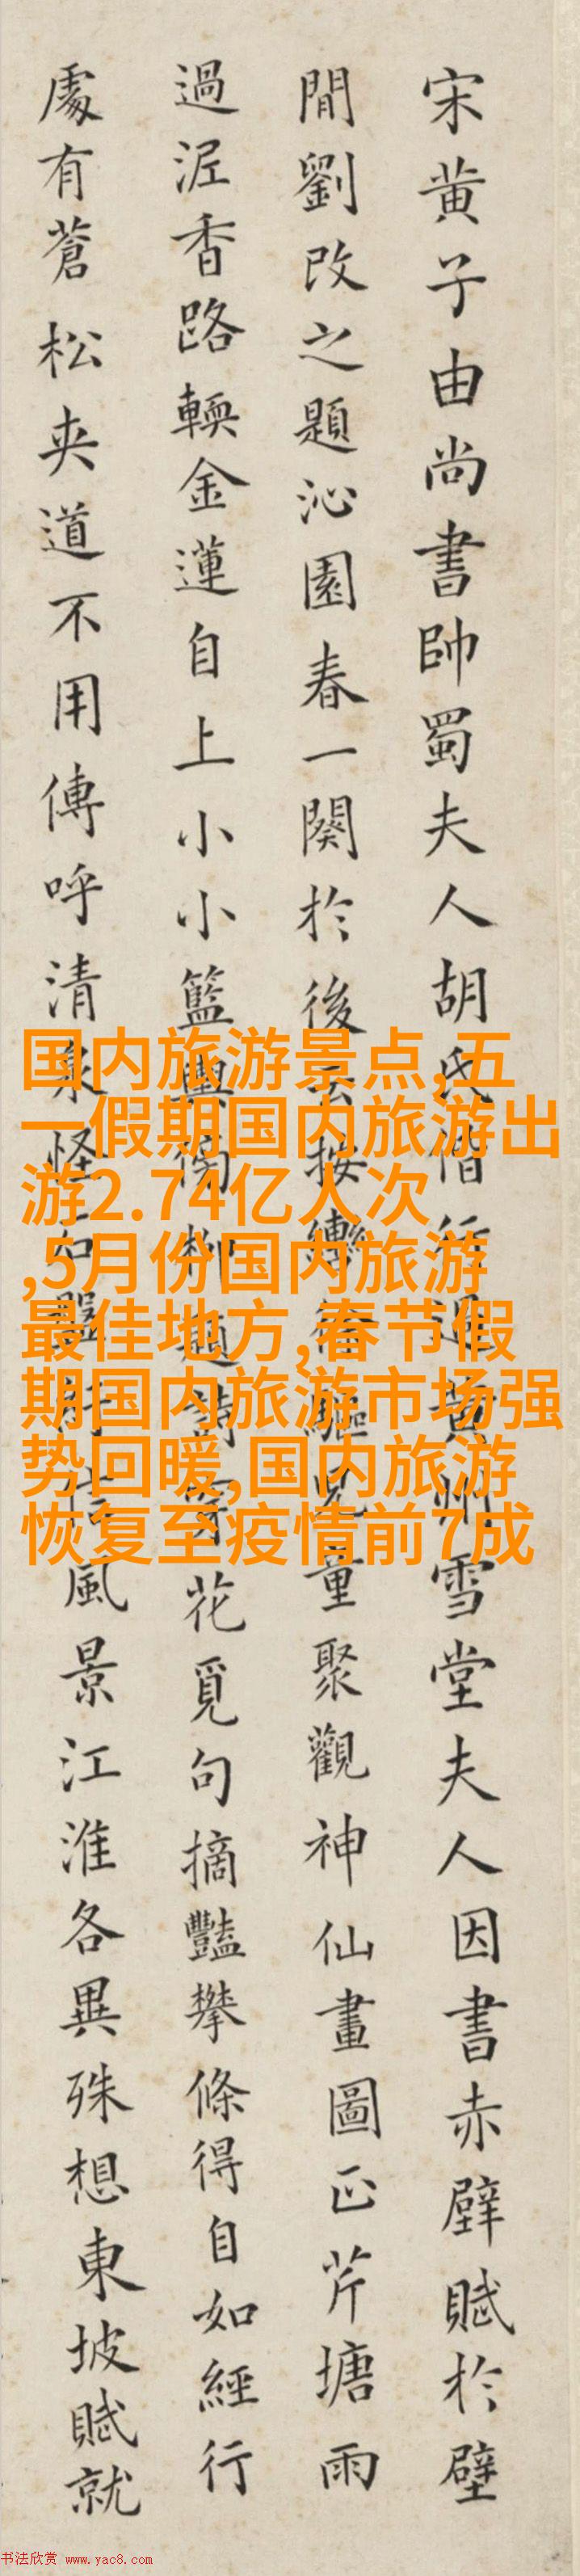 宋黄子由尚書帥蜀夫人胡氏偕行過黄州雪堂夫人因書赤壁賦於壁
間劉改之題沁園春一闋於後云按轡徐驅兒童聚觀神仙畫圖正芹塘雨
過泥香路輭金蓮自上小小籃輿傍柳題詩穿花覓句摘豔攀條得自如經行
處有蒼松夾道不用傳呼清泉怪石盤紆信風景江淮各異殊想東坡賦就
国内旅游景点,五
一假期国内旅游出
游2.74亿人次
,5月份国内旅游
最佳地方,春节假
期国内旅游市场强
势回暖,国内旅游
恢复至疫情前7成
书法欣赏 www.yac8.com